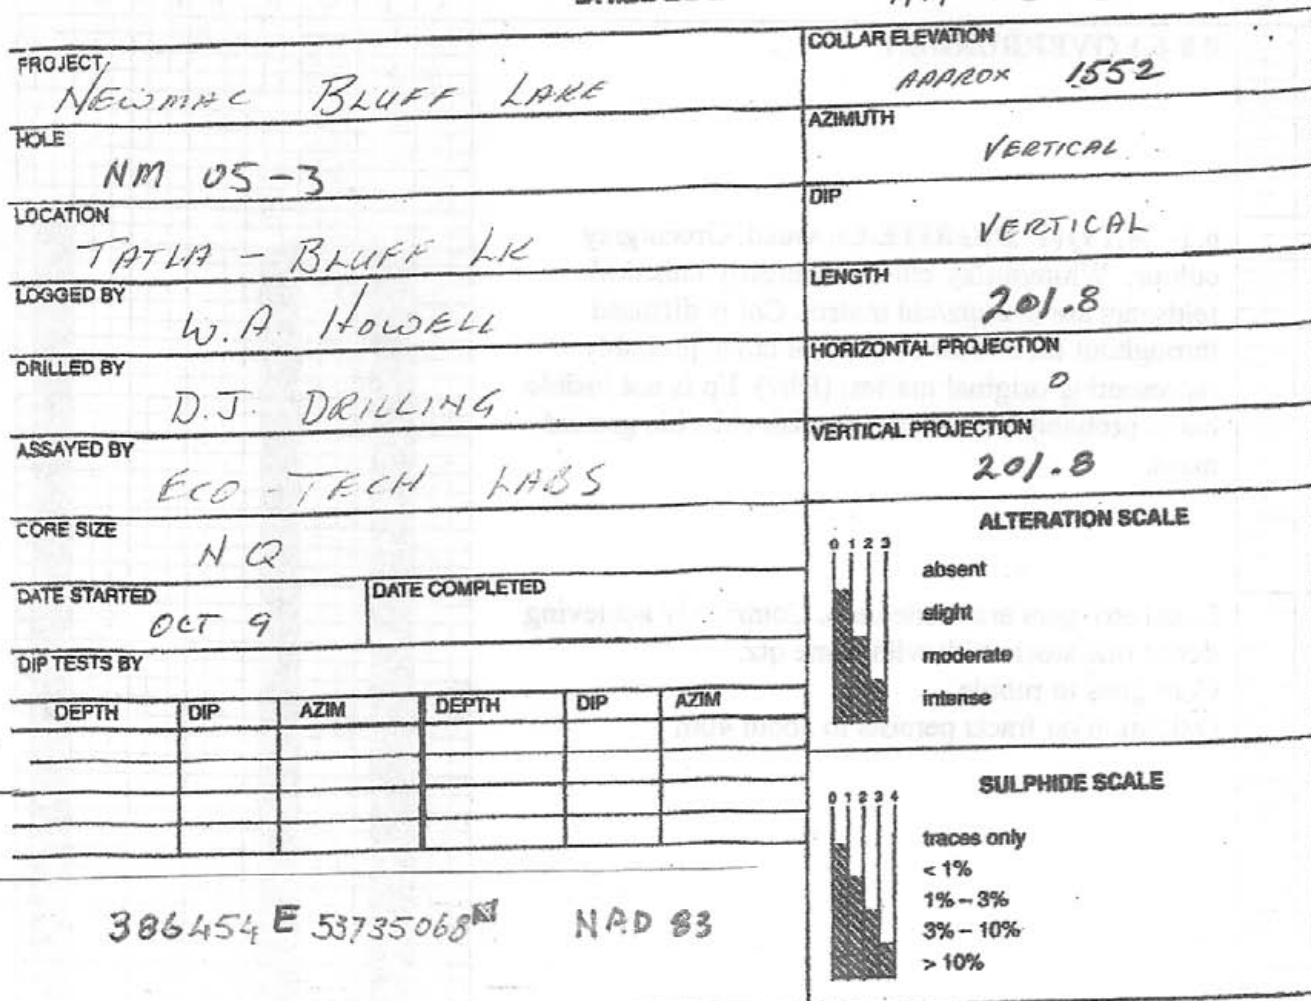 PROJECT
NEWMAC BLUFF LAKE
HOLE
NM 05-3
LOCATION
TATLA - BLUFF LK
LOGGED BY
W.A. HOWELL
DRILLED BY
D.J DRILLING
ASSAYED BY
ECO-TECH LABS
CORE SIZE
NQ
DATE STARTED
OCT 9
DATE COMPLETED
DIP TESTS BY
DEPTH DIP AZIM DEPTH DIP AZIM
386454 E 53735068 N NAD 83
COLLAR ELEVATION
APPROX 1552
AZIMUTH
VERTICAL
DIP
VERTICAL
LENGTH
201.8
HORIZONTAL PROJECTION
0
VERTICAL PROJECTION
201.8
ALTERATION SCALE
0 1 2 3
absent
slight
moderate
intense
SULPHIDE SCALE
0 1 2 3 4
traces only
< 1%
1% - 3%
3% - 10%
> 10%